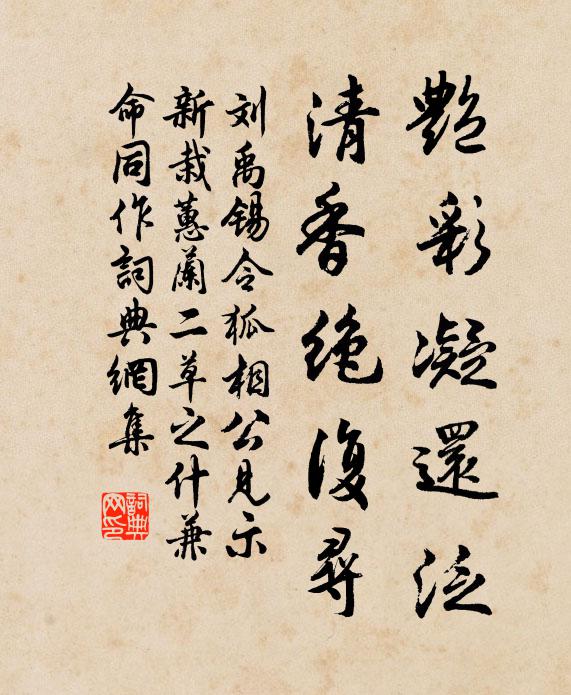 艷彩凝還泛
清香绝復尋
刘禹锡令狐相公見示
新栽蕙蘭二草之什兼
命同作詞典網集
詞典网印